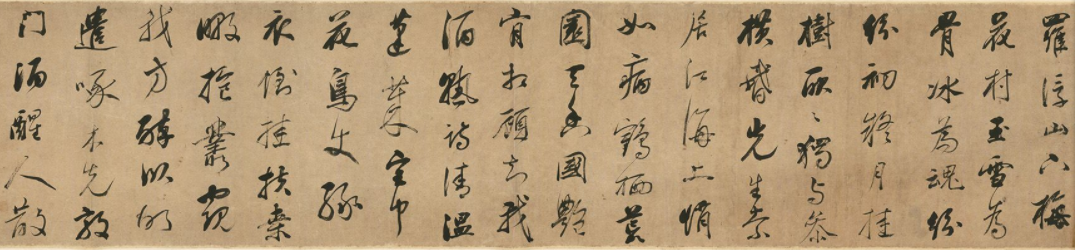 羅浮山下梅
花村玉雪為
骨冰為魂紛
紛初疑月挂
樹耿〻獨与參
橫昏先生索
居江海上悄
如病鶴栖荒
園天香國艷
肯相顧知我
酒熟詩清溫
蓬萊宮中
花鳥使綠
衣倒挂扶桑
暾抱叢窺
我方醉臥故
遣啄木先敲
門酒醒人散